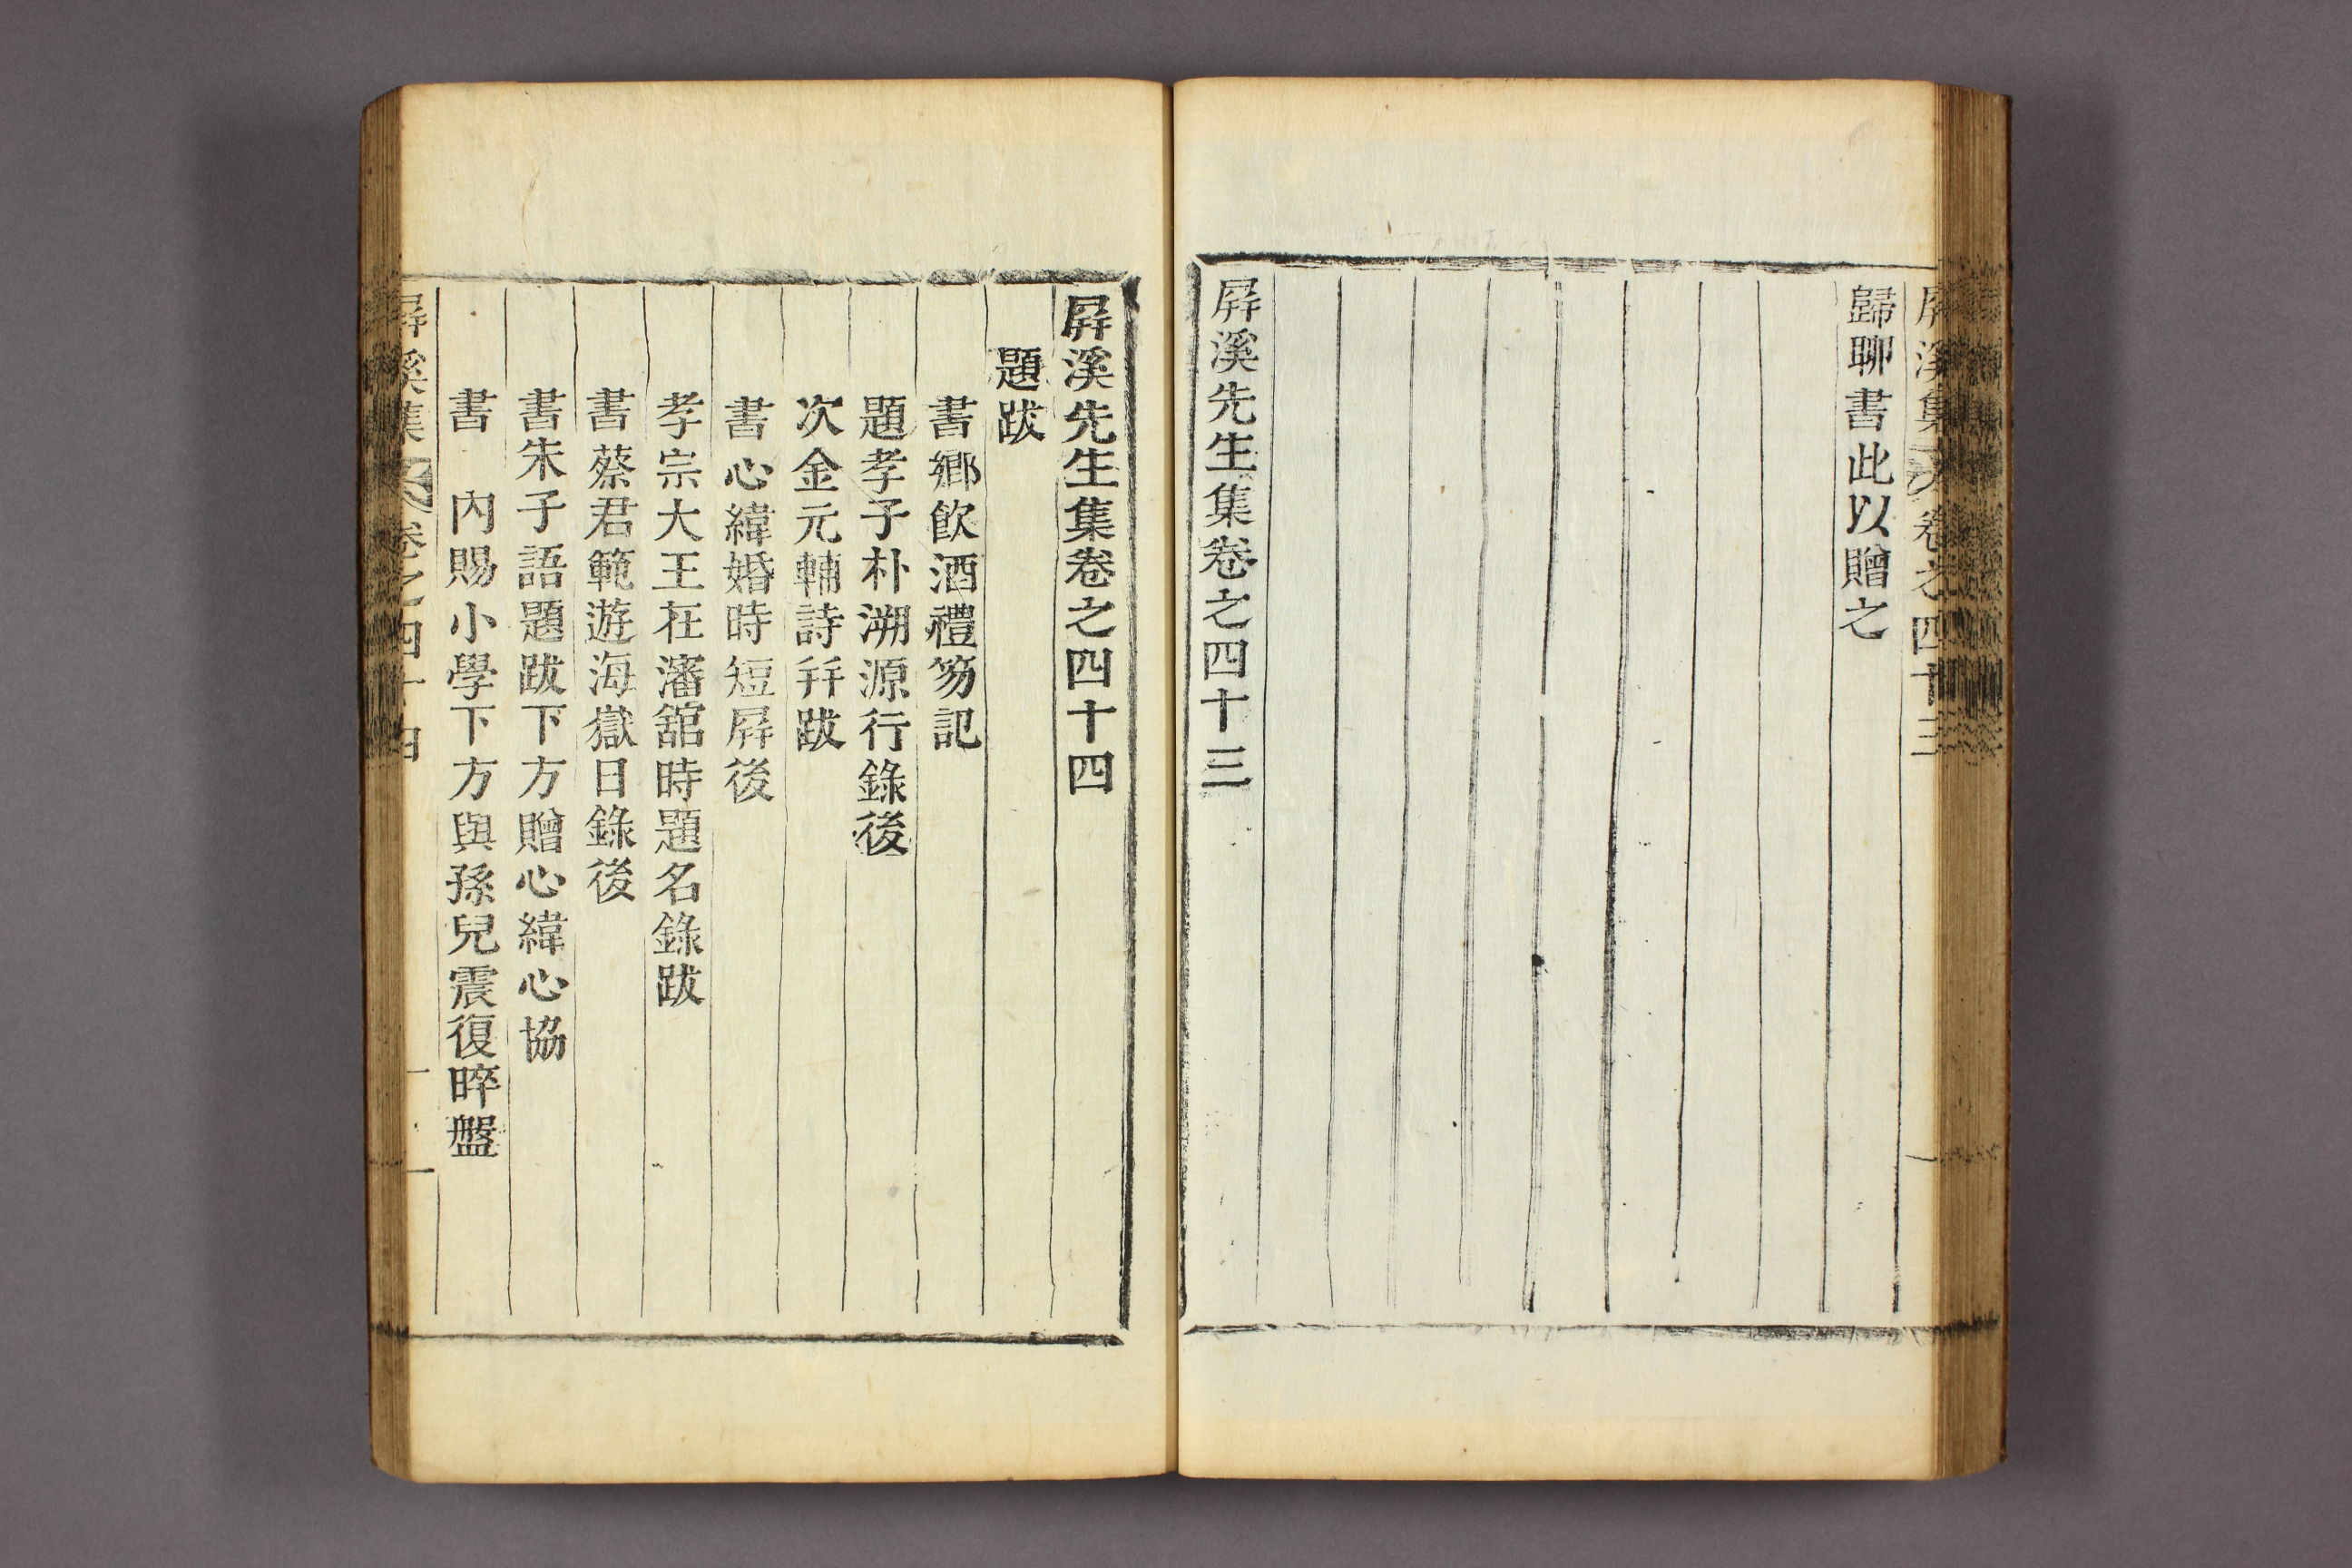 屛溪集 卷之四十三
歸聊書此以贈之
屛溪先生集卷之四十三
屛溪先生集卷之四十四
題跋
書鄕飮酒禮笏記
題孝子朴溯源行錄後
次金元輔詩幷跋
書心緯婚時短屛後
孝宗大王在瀋舘時題名錄跋
書蔡君範遊海嶽日錄後
書朱子語題跋下方贈心緯心協
書 內賜小學下方與孫兒震復晬盤
屛溪集 卷之四十四 一